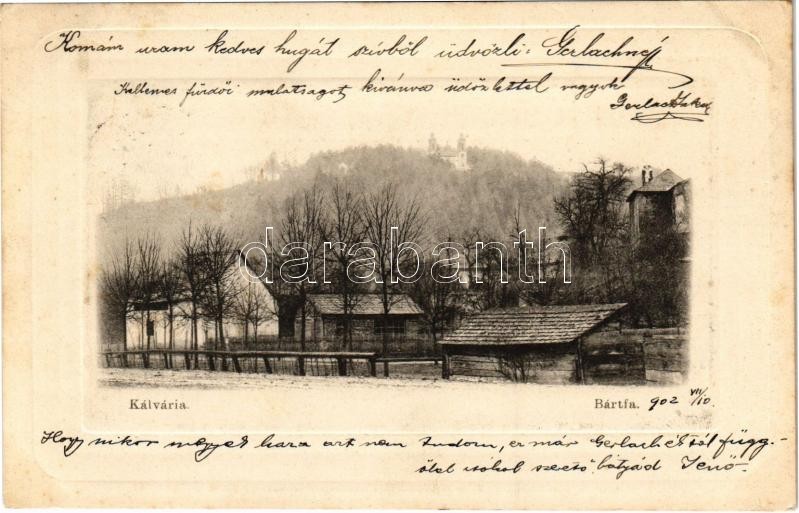 Komám uram kedves hugát szívből üdvözli: Gerlachné
Kellemes fürdői mulatságot kivánva üdözlettel vagyok
Gerlach
darabanth
Kálvária.
Bártfa. 902 VII/10.
Hogy mikor megyek haza azt nem tudom, ez már Gerlachéktól függ.
ölel csókol szerető bátyád Jenő.